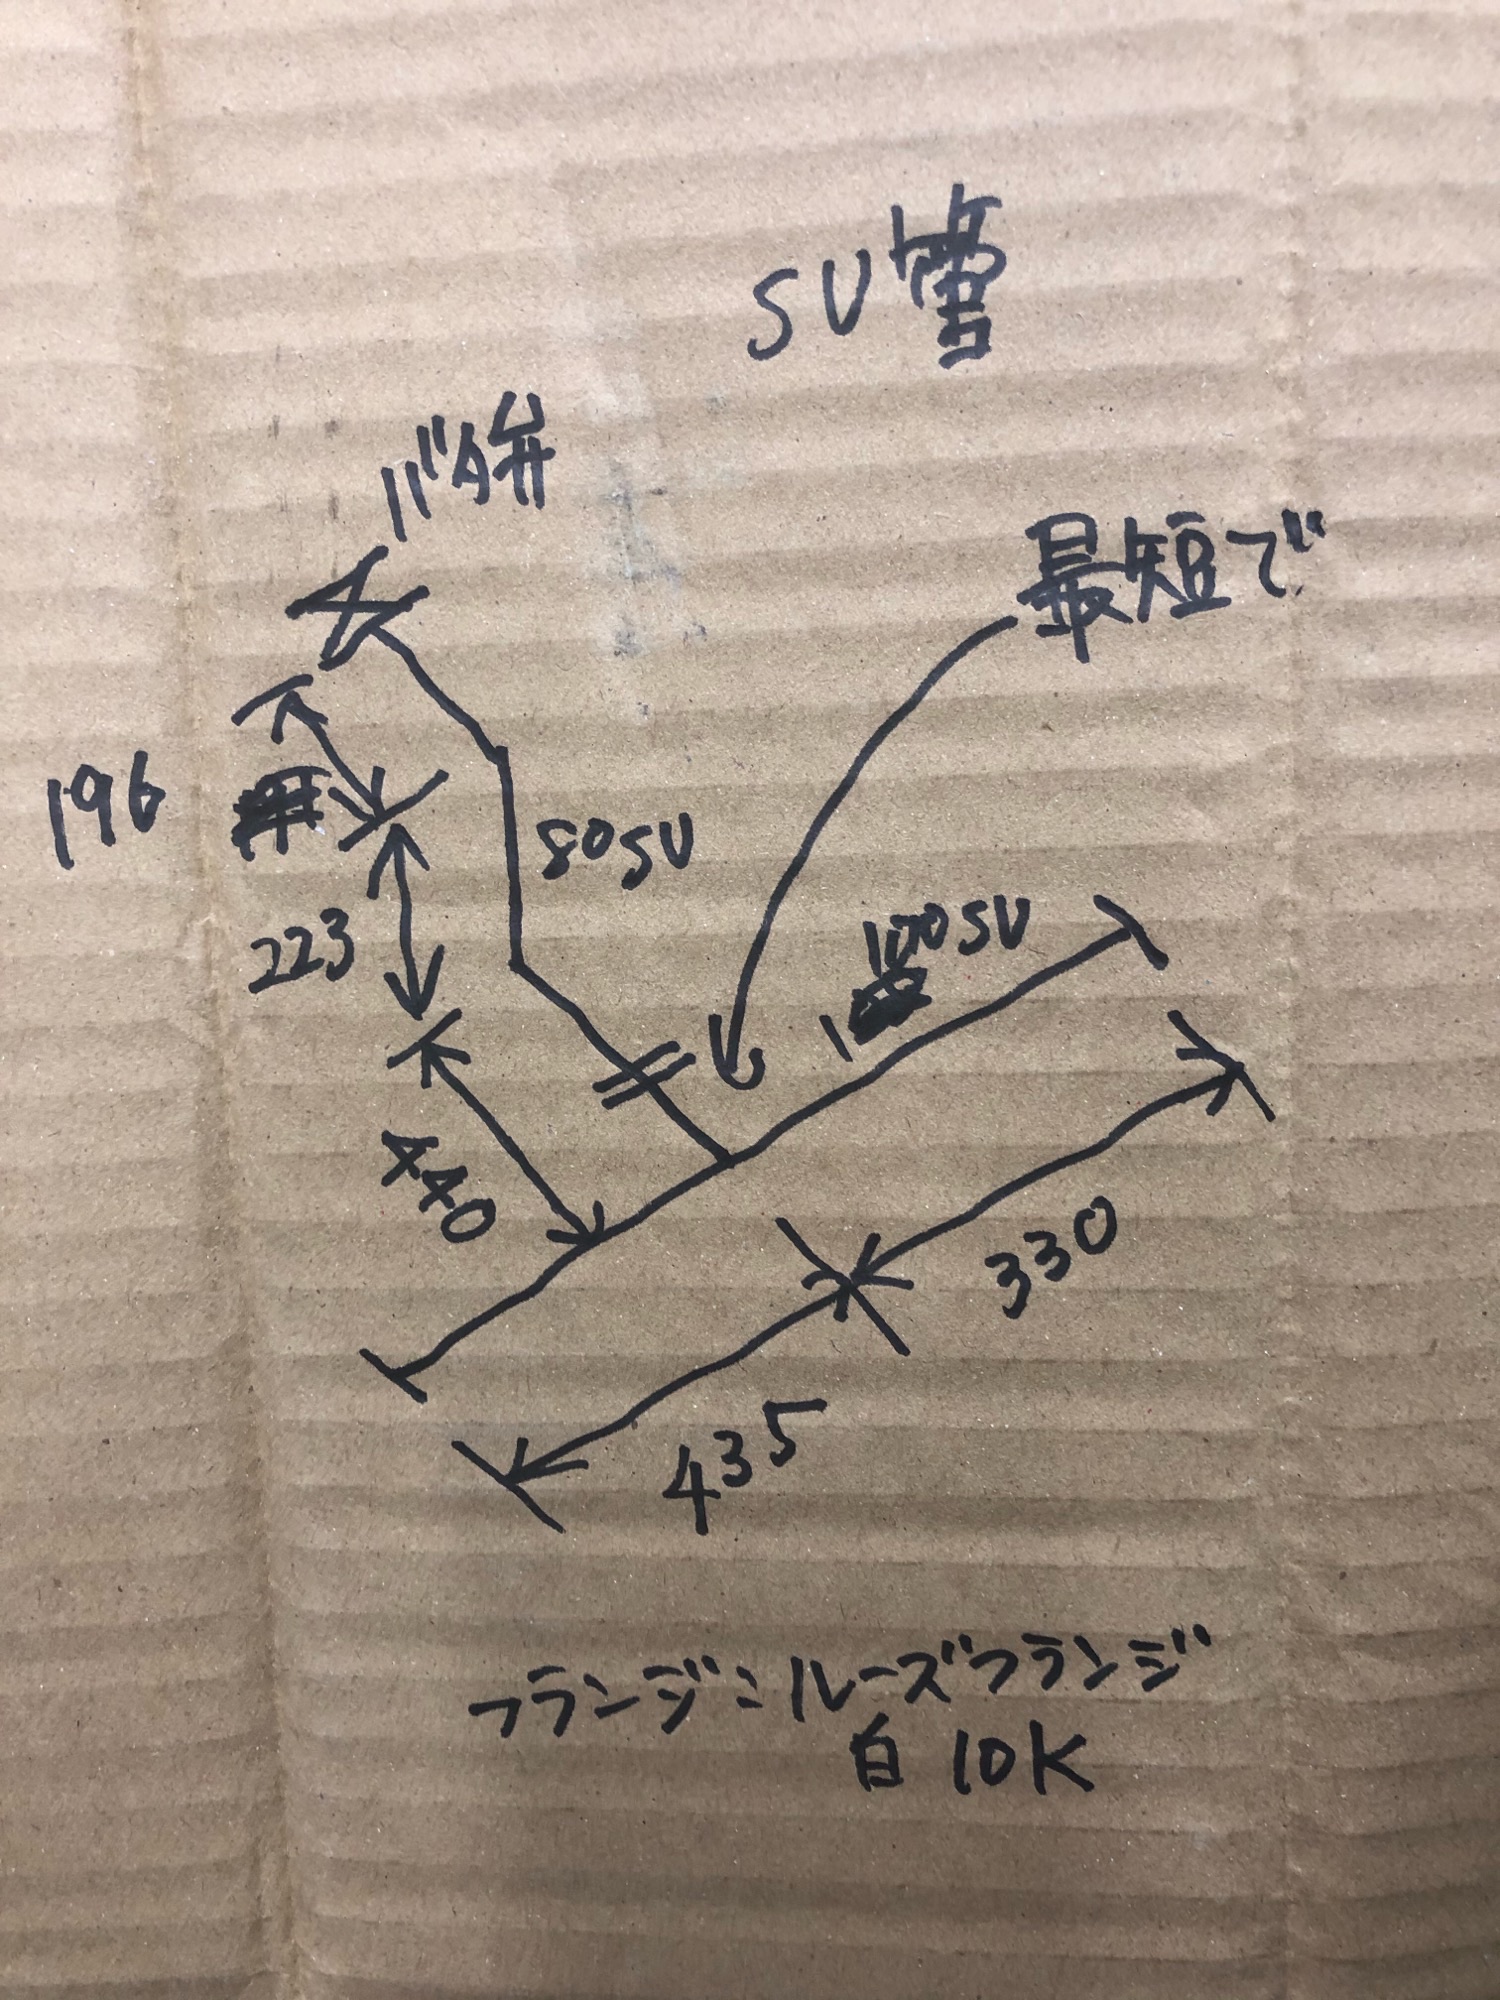 SU管
バタ弁
最短で
196
80SU
223
100SU
440
330
435
フランジ:ルーズフランジ
白 10K